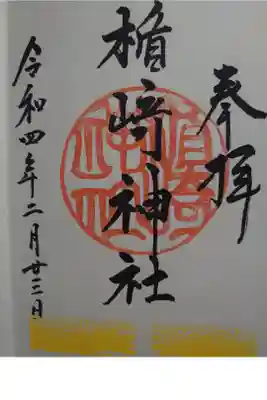 奉拝
楯﨑神社
令和四年二月廿三日